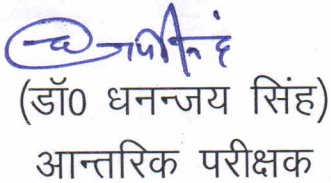 (डॉ0 धनन्जय सिंह)
आन्तरिक परीक्षक